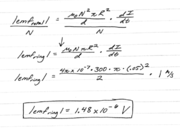 |emf_coil| / N = μ₀N²πR² / d / N · dI/dt
|emf_ring| = μ₀NπR² / d · dI/dt
|emf_ring| = 4π×10⁻⁷ · 300 · π · (.05)² / 2 · 1 A/s
|emf_ring| = 1.48 × 10⁻⁶ V